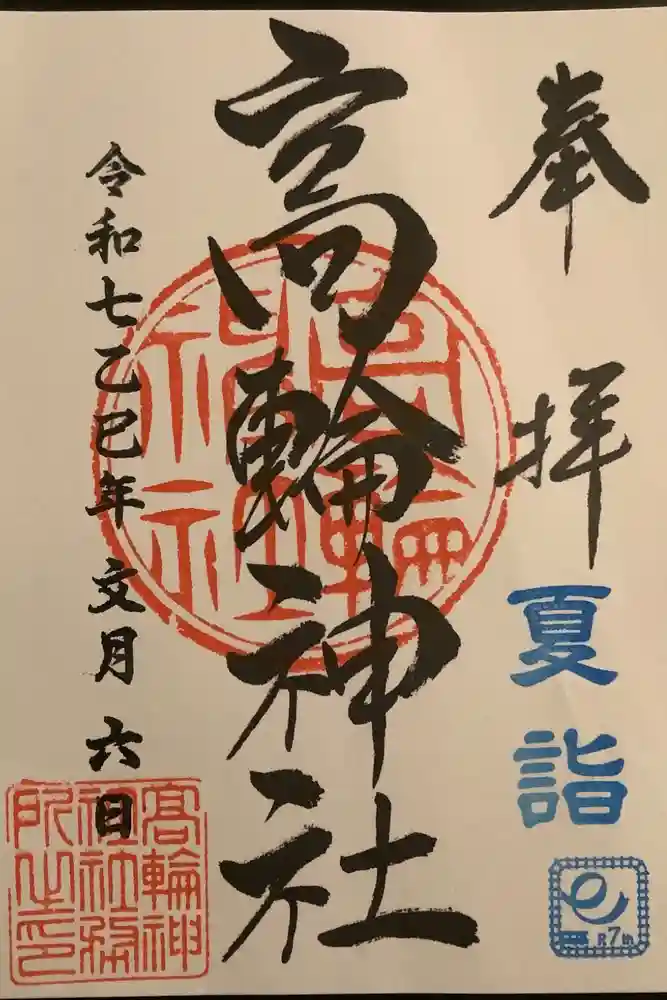 奉拝
夏詣
R7th
高輪神社
高輪神社
令和七乙巳年 文月 六日
高輪神社務所之印